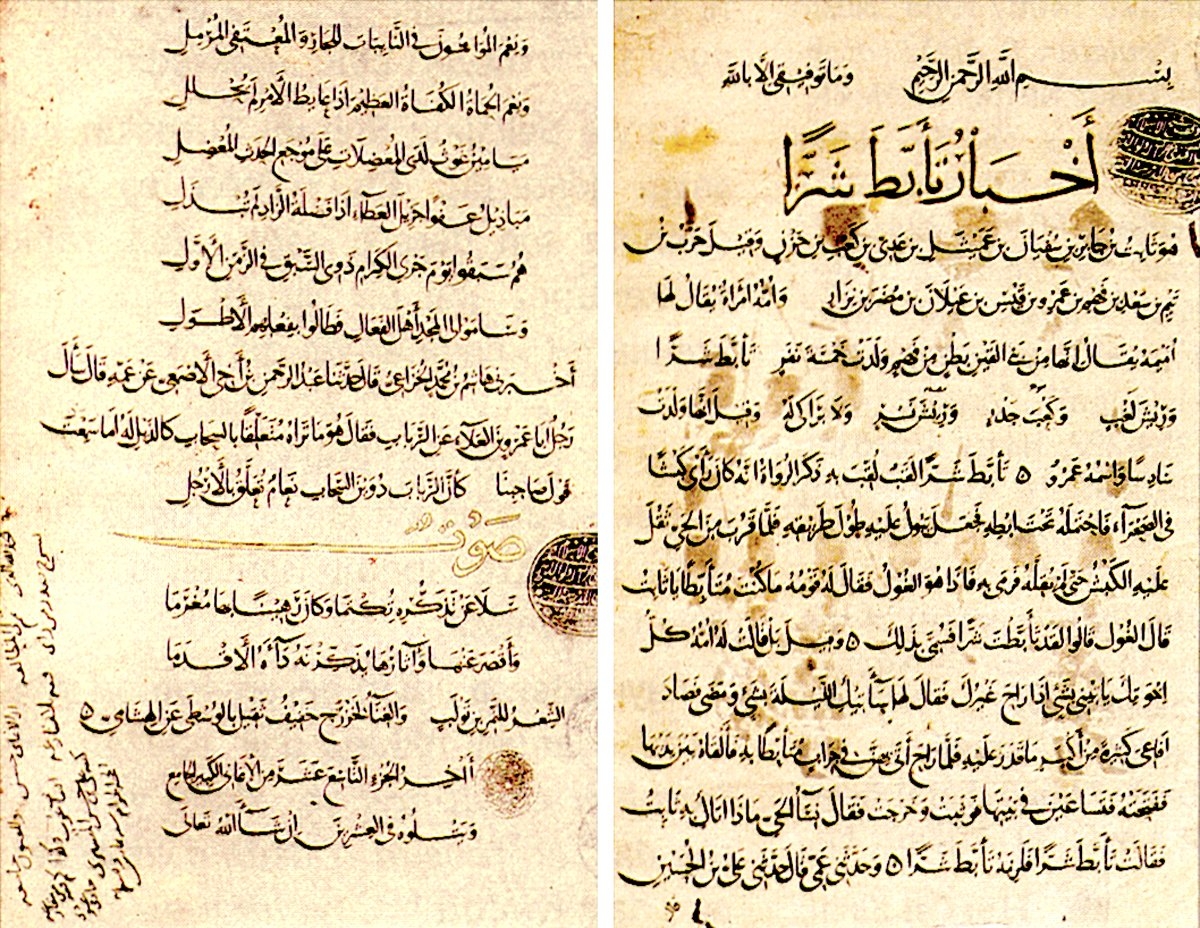 بسم الله الرحمن الرحيم وما توفيقي الا بالله
أخبار تأبط شرا
هو ثابت بن جابر بن سفيان بن عميثل بن عدي بن كعب بن حزن وقيل حرب بن
تيم بن سعد بن فهم بن عمرو بن قيس بن عيلان بن مضر بن نزار وامه امرأة يقال لها
اميمة يقال انها من بني القين بطن من فهم ولدت خمسة نفر تأبط شرا
وريش لغب وكعب جدر وريش نسر ولا بواكي له وقيل انها ولدت
سادسا واسمه عمرو ٥ تأبط شرا لقب لقب به ذكر الرواة انه كان رأى كبشا
في الصحراء فاحتمله تحت ابطه فجعل يبول عليه طول طريقه فلما قرب من الحي ثقل
عليه الكبش حتى لم يقله فرمى به فاذا هو الغول فقال له قومه ما كنت متأبطا يا ثابت
قال الغول قالوا لقد تأبطت شرا فسمي بذلك ٥ وقيل بل قالت له امه كل
اخوتك يأتيني بشيء اذا راح غيرك فقال لها سآتيك الليلة بشيء ومضى فصاد
افاعي كثيرة من أكبر ما قدر عليه فلما راح أتى بهن في جراب متأبطا به فألقاه بين يديها
ففتحته فتساعين في بيتها فوثبت وخرجت فقال نساء الحي ماذا اتاك به ثابت
فقالت تأبط شرا فلزمه تأبط شرا ٥ وحدثني عمي قال حدثني علي بن الحسين
ونعم المواسون في النايبات للجار والمعتفي المرمل
ونعم الحماة الكفاة العظيم اذا عايط الأمر لم يحلل
ميامين غوث لدى المعضلات على موجع الحدث المعضل
مباذيل عفوا جزيل العطاء اذا فضلة الزاد لم تبذل
هم سبقوا يوم جري الكرام ذوي السبق في الزمن الأول
وساموا الى المجد أهل الفعال فطالوا بفعلهم الأطول
أخبرني هاشم بن محمد الخزاعي قال حدثنا عبد الرحمن بن أخي الأصمعي عن عمه قال سأل
رجل ابا عمرو بن العلاء عن الرباب فقال هو ما تراه متعلقا بالسحاب كالذيل له اما سمعت
قول صاحبنا كأن الرباب دوين السحاب نعام تعلق بالأرجل
صوت
سلا عن تذكره تكتما وكان رهينا بها مغرما
وأقصر عنها وآثارها يذكرنه داءه الأقدما
الشعر للنمر بن تولب والغناء لخزرج خفيف ثقيل بالوسطى عن الهشامي ٥
آخر الجزء التاسع عشر من الأغاني الكبير الجامع
ويتلوه في العشرين ان شاء الله تعالى